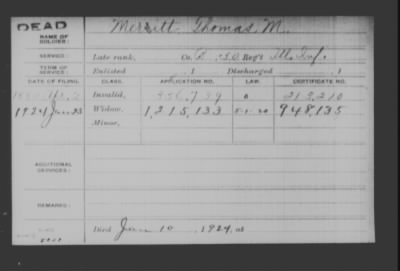 DEAD
NAME OF SOLDIER: Merritt Thomas M.
SERVICE: Late rank, Co. Reg't Ill. Inf.
TERM OF SERVICE: Enlisted , 1 Discharged , 1
DATE OF FILING. CLASS. APPLICATION NO. LAW. CERTIFICATE NO.
Invalid, 213,210
1924 Jun 23 Widow, 1,215,133 5-1-20 948,135
Minor,
ADDITIONAL SERVICES:
REMARKS:
Died 10 , 1924, at